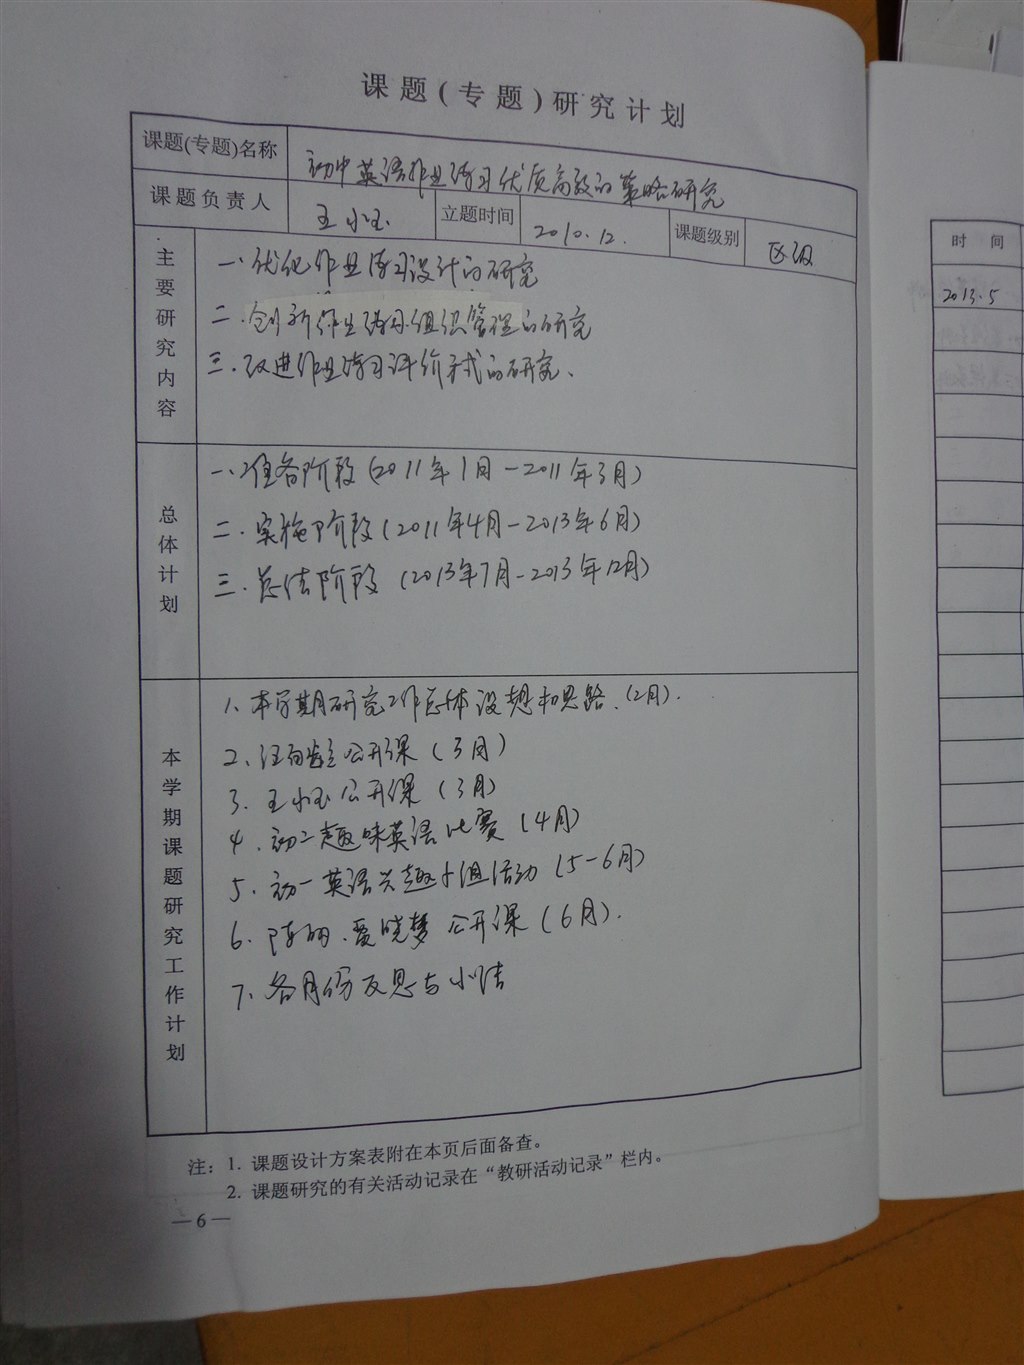 课题(专题)研究计划
课题(专题)名称 初中英语作业练习优质高效的策略研究
课题负责人 王小玉 立题时间 2010.12. 课题级别 区级
主要研究内容
一、优化作业练习设计的研究
二、创新作业练习组织管理的研究
三、改进作业练习评价方式的研究、
总体计划
一、准备阶段(2011年1月-2011年3月)
二、实施阶段(2011年4月-2013年6月)
三、总结阶段(2013年7月-2013年12月)
本学期课题研究工作计划
1、本学期研究工作总体设想和思路、(2月).
2、汪 公开课(3月)
3、王小玉公开课(3月)
4、初二趣味英语比赛(4月)
5、初一英语兴趣小组活动(5-6月)
6、陈 、 晓梦公开课(6月).
7、各月份反思与小结
注：1. 课题设计方案表附在本页后面备查。
2. 课题研究的有关活动记录在“教研活动记录”栏内。
—6—
时 间
2013.5